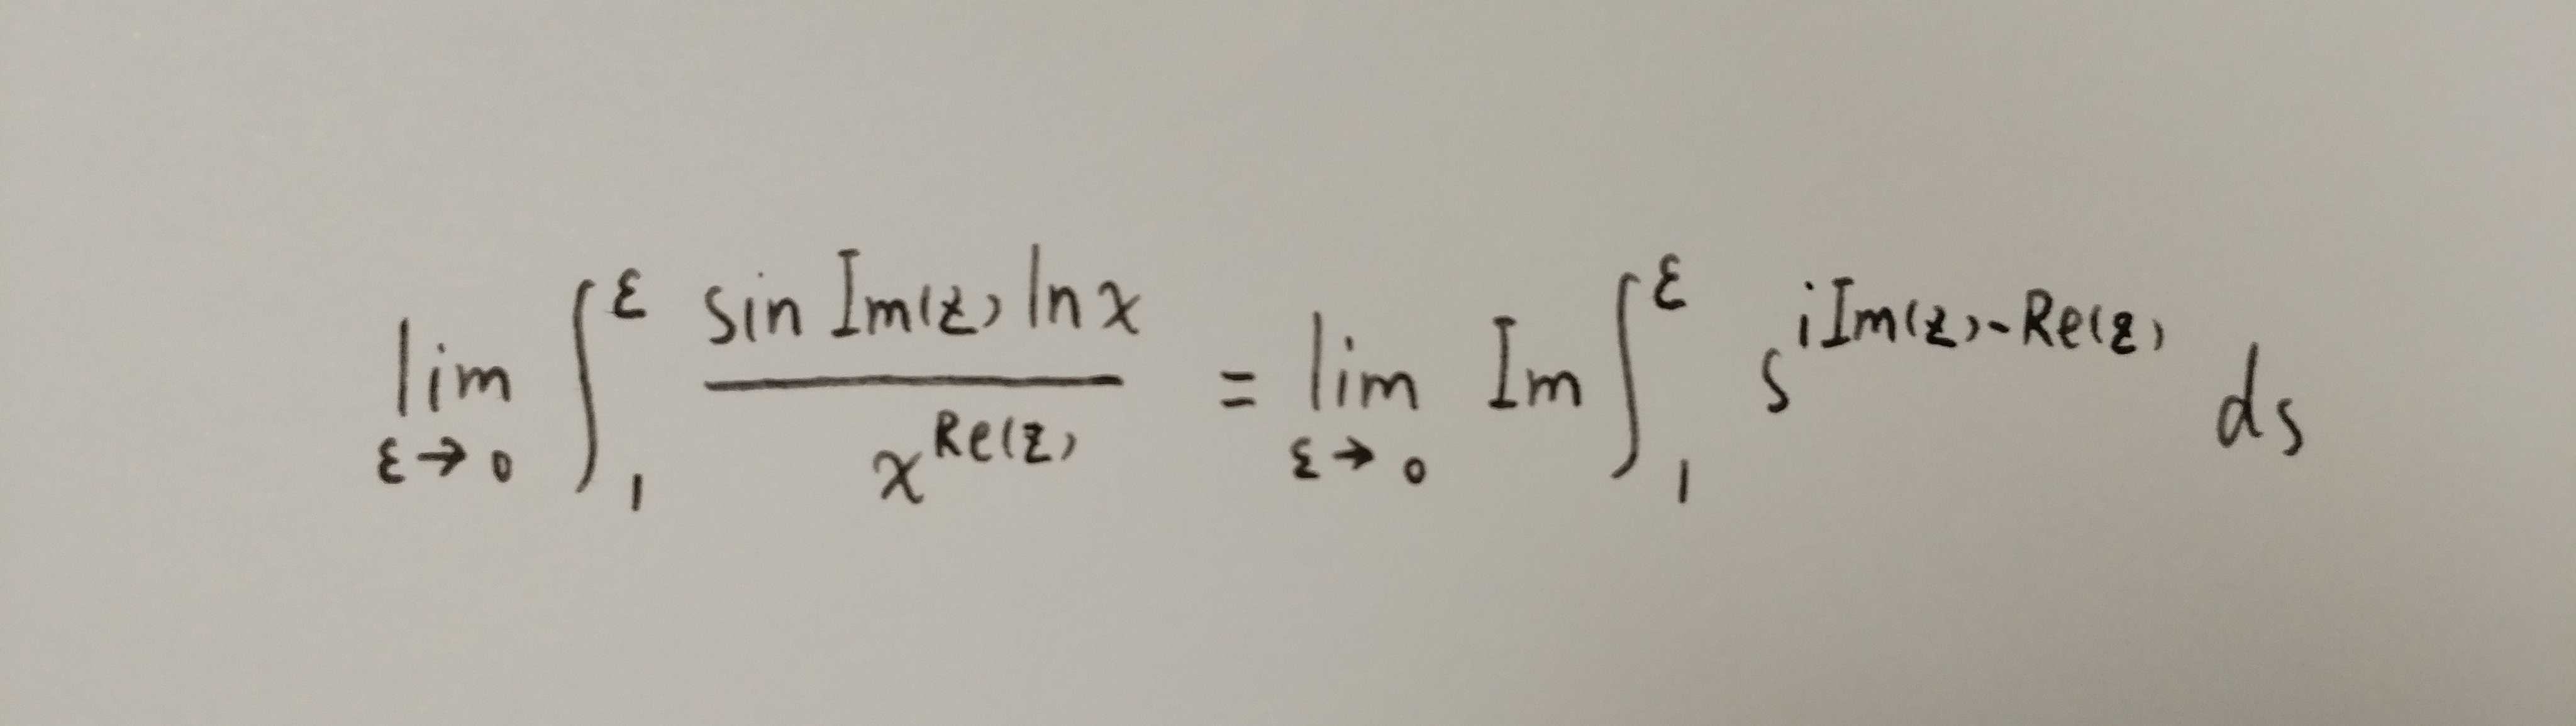 lim_{ε→0} ∫_1^ε \frac{sin Im(z) ln x}{x^{Re(z)}} = lim_{ε→0} Im ∫_1^ε s^{iIm(z)-Re(z)} ds